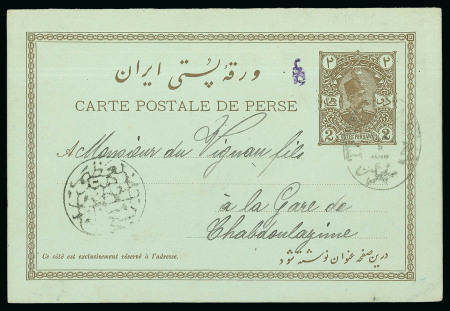 ۲ ۲
ورقهٔ پستی ایران
CARTE POSTALE DE PERSE
POSTES PERSANES
2 2
A Monsieur du Vignau fils
à la Gare de
Chabdoulazime
Ce côté est exclusivement réservé à l'adresse.
درین صفحه عنوان نوشته شود